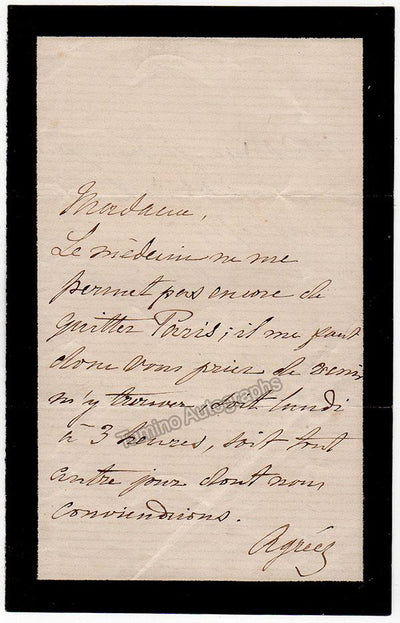 Madame,
Le médecin ne me
permet pas encore de
quitter Paris; il me faut
donc vous prier de venir
m'y trouver, soit lundi
à 3 heures, soit tout
autre jour dont nous
conviendrions.
Agréez
Tamino Autographs